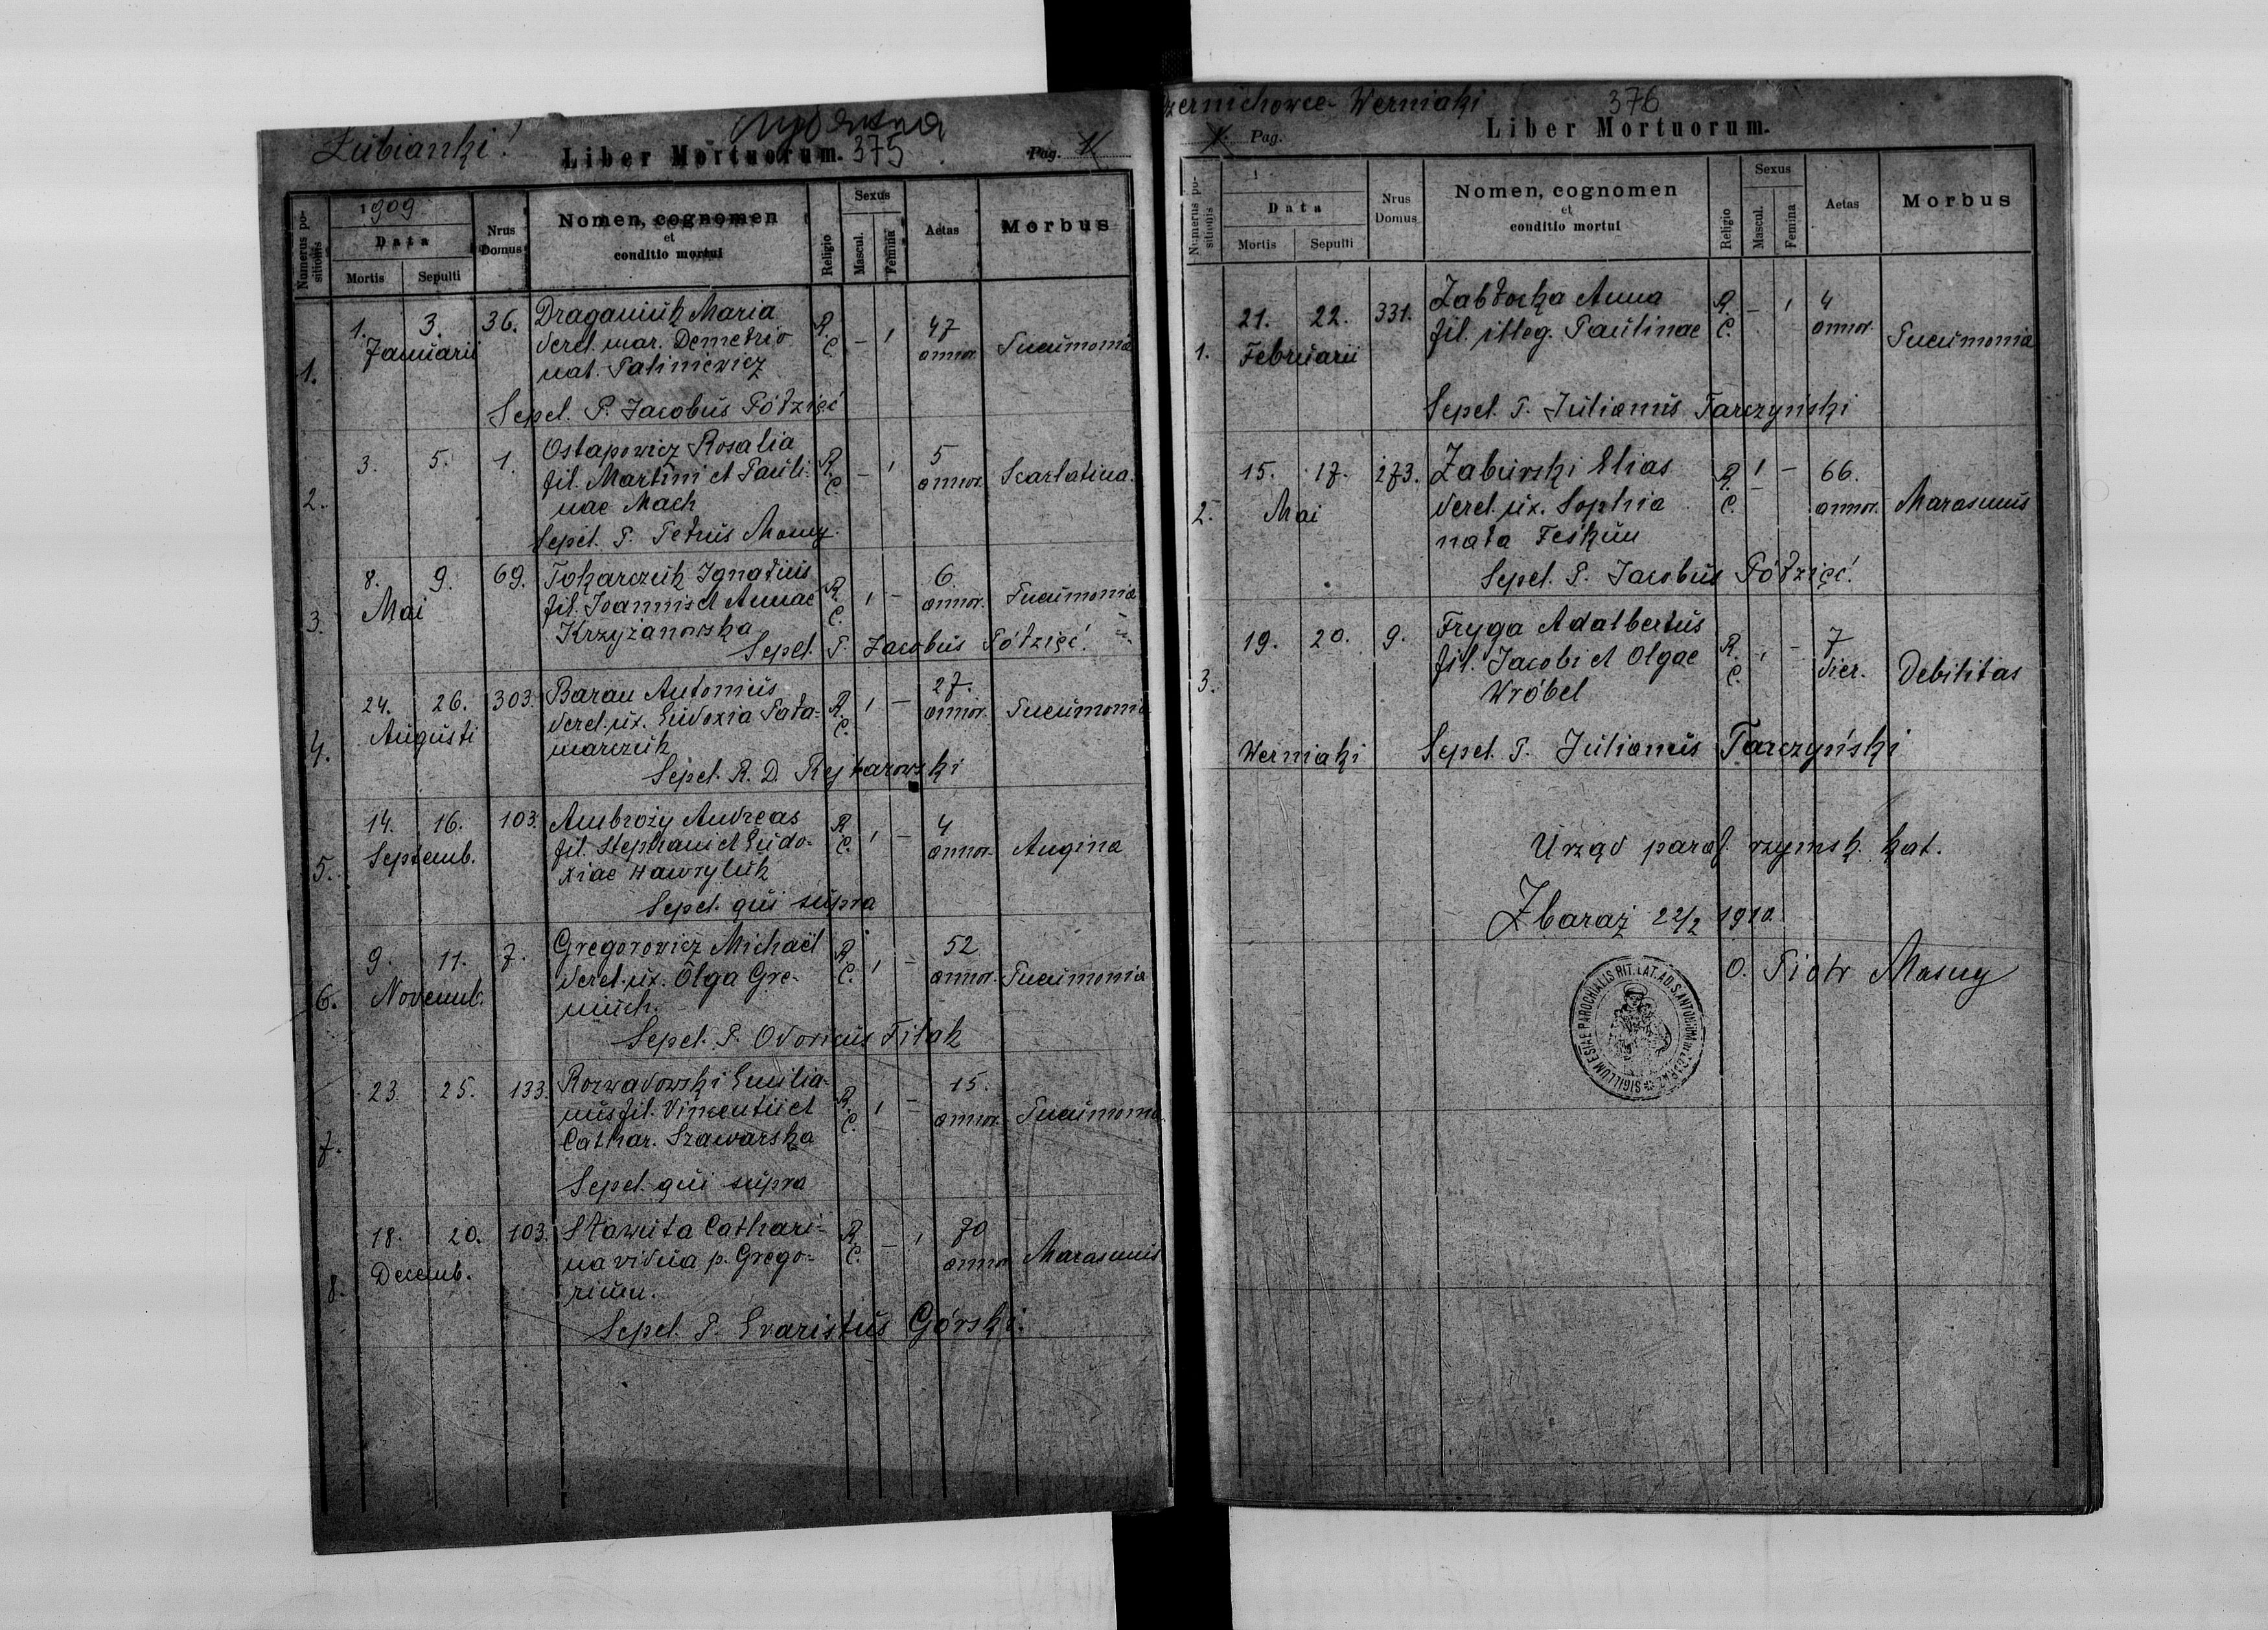 Łubianki!
Liber Mortuorum. 375
Pag. 1
Numerus positionis
1909
Data
Mortis
Sepulti
Nrus Domus
Nomen, cognomen
et
conditio mortui
Religio
Sexus
Mascul.
Femina
Aetas
Morbus
1. 1. 3. 36. Draganiuk Maria R. C. – 1 47 annor. Pneumonia
Januarii derel. mar. Demetrio
nat. Paliniewicz
Sepel. P. Jacobus Półzięć
2. 3. 5. 1. Ostapowicz Rosalia R. C. – 1 5 annor. Scarlatina.
fil. Martini et Pauli-
nae Mach
Sepel. P. Petrus Masny
3. 8. 9. 69. Tokarczuk Ignatius R. C. 1 – 6 annor. Pneumonia
Mai fil. Joannis et Annae
Krzyżanowska
Sepel. P. Jacobus Półzięć.
4. 24. 26. 303. Baran Antonius R. C. 1 – 27. annor. Pneumonia
Augusti derel. ux. Eudoxia Pała-
marczuk
Sepel. R. D. Rejharowski
5. 14. 16. 103. Ambroży Andreas R. C. 1 – 4 annor. Angina
Septemb. fil. Stephani et Eudo-
xiae Hawryluk
Sepel. qui supra
6. 9. 11. 7. Gregorowicz Michaël R. C. 1 – 52 annor. Pneumonia
Novemb. derel. ux. Olga Gre-
Sepel. P. Odoricus Fitak
7. 23. 25. 133. Rozwadowski Emilia- R. C. 1 – 15. annor. Pneumonia
nus fil. Vincentii et
Cathar. Szawarska
Sepel. qui supra
8. 18. 20. 103. Sławuta Cathari- R. C. – 1 70 annor. Marasmus
Decemb. na vidua p. Grego-
rium.
Sepel. P. Evaristus Górski.
Czernichowce- Werniaki 376
1. Pag.
Liber Mortuorum.
Numerus positionis
1
Data
Mortis
Sepulti
Nrus Domus
Nomen, cognomen
et
conditio mortui
Religio
Sexus
Mascul.
Femina
Aetas
Morbus
1. 21. 22. 331. Zabłocka Anna R. C. – 1 4 annor. Pneumonia
Februarii fil. illeg. Paulinae
Sepel. P. Julianus Tarczyński
2. 15. 17. 273. Zaburski Elias R. C. 1 – 66. annor. Marasmus
Mai derel. ux. Sophia
nata Feśkun
Sepel. P. Jacobus Półzięć.
3. 19. 20. 9. Fryga Adalbertus R. C. 1 – 7 dier. Debilitas
fil. Jacobi et Olgae
Wróbel
Werniaki Sepel. P. Julianus Tarczyński
Urząd paraf. rzymsk. kat.
Zbaraż 22/2 1910.
O. Piotr Masny
SIGILLUM ESIAE PAROCHIALIS RIT. LAT. AD. S. ANTONIUM in ZBARAŻ